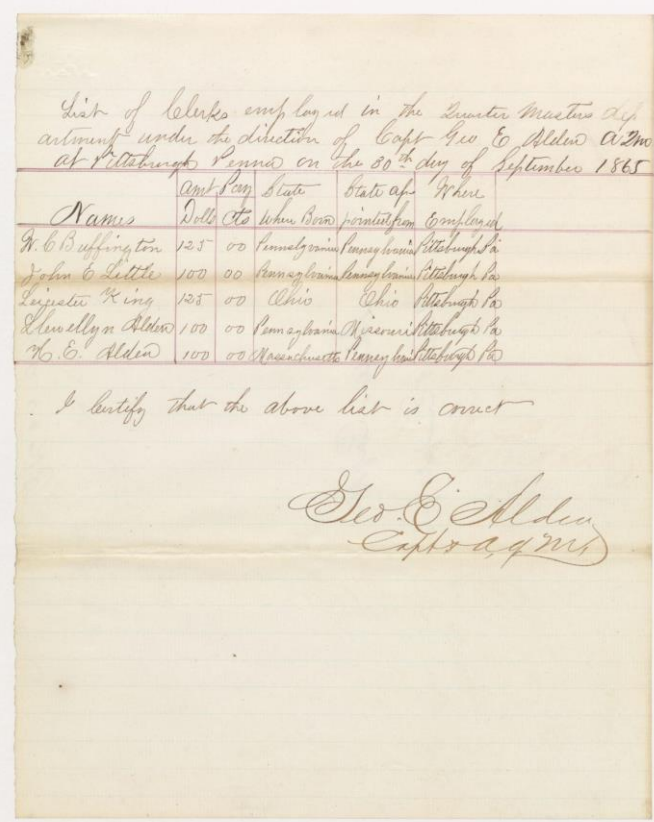 List of Clerks employed in the Quarter Masters dep
artment under the direction of Capt Geo E Alden A2M
at Pittsburgh Penna on the 30th day of September 1865
Names Amt Pay Dolls cts State Where Born State ap pointed from Where Employed
W. C Buffington 125 00 Pennsylvania Pennsylvania Pittsburgh Pa
John E Little 100 00 Pennsylvania Pennsylvania Pittsburgh Pa
Leicester King 125 00 Ohio Ohio Pittsburgh Pa
Llewellyn Alden 100 00 Pennsylvania Missouri Pittsburgh Pa
H. E. Alden 100 00 Massachusetts Pennsylvania Pittsburgh Pa
I Certify that the above list is correct
Geo. E. Alden
Capt & A,q M,